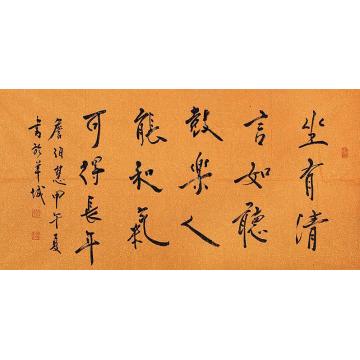 坐有清
言如聽
鼓樂人
能和氣
可得長年
詹伯慧甲午夏
書於羊城